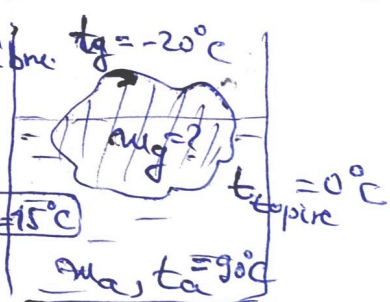 tg = -20°C
mg = ?
t topire = 0°C
= 15°C
ma, ta = 90°C